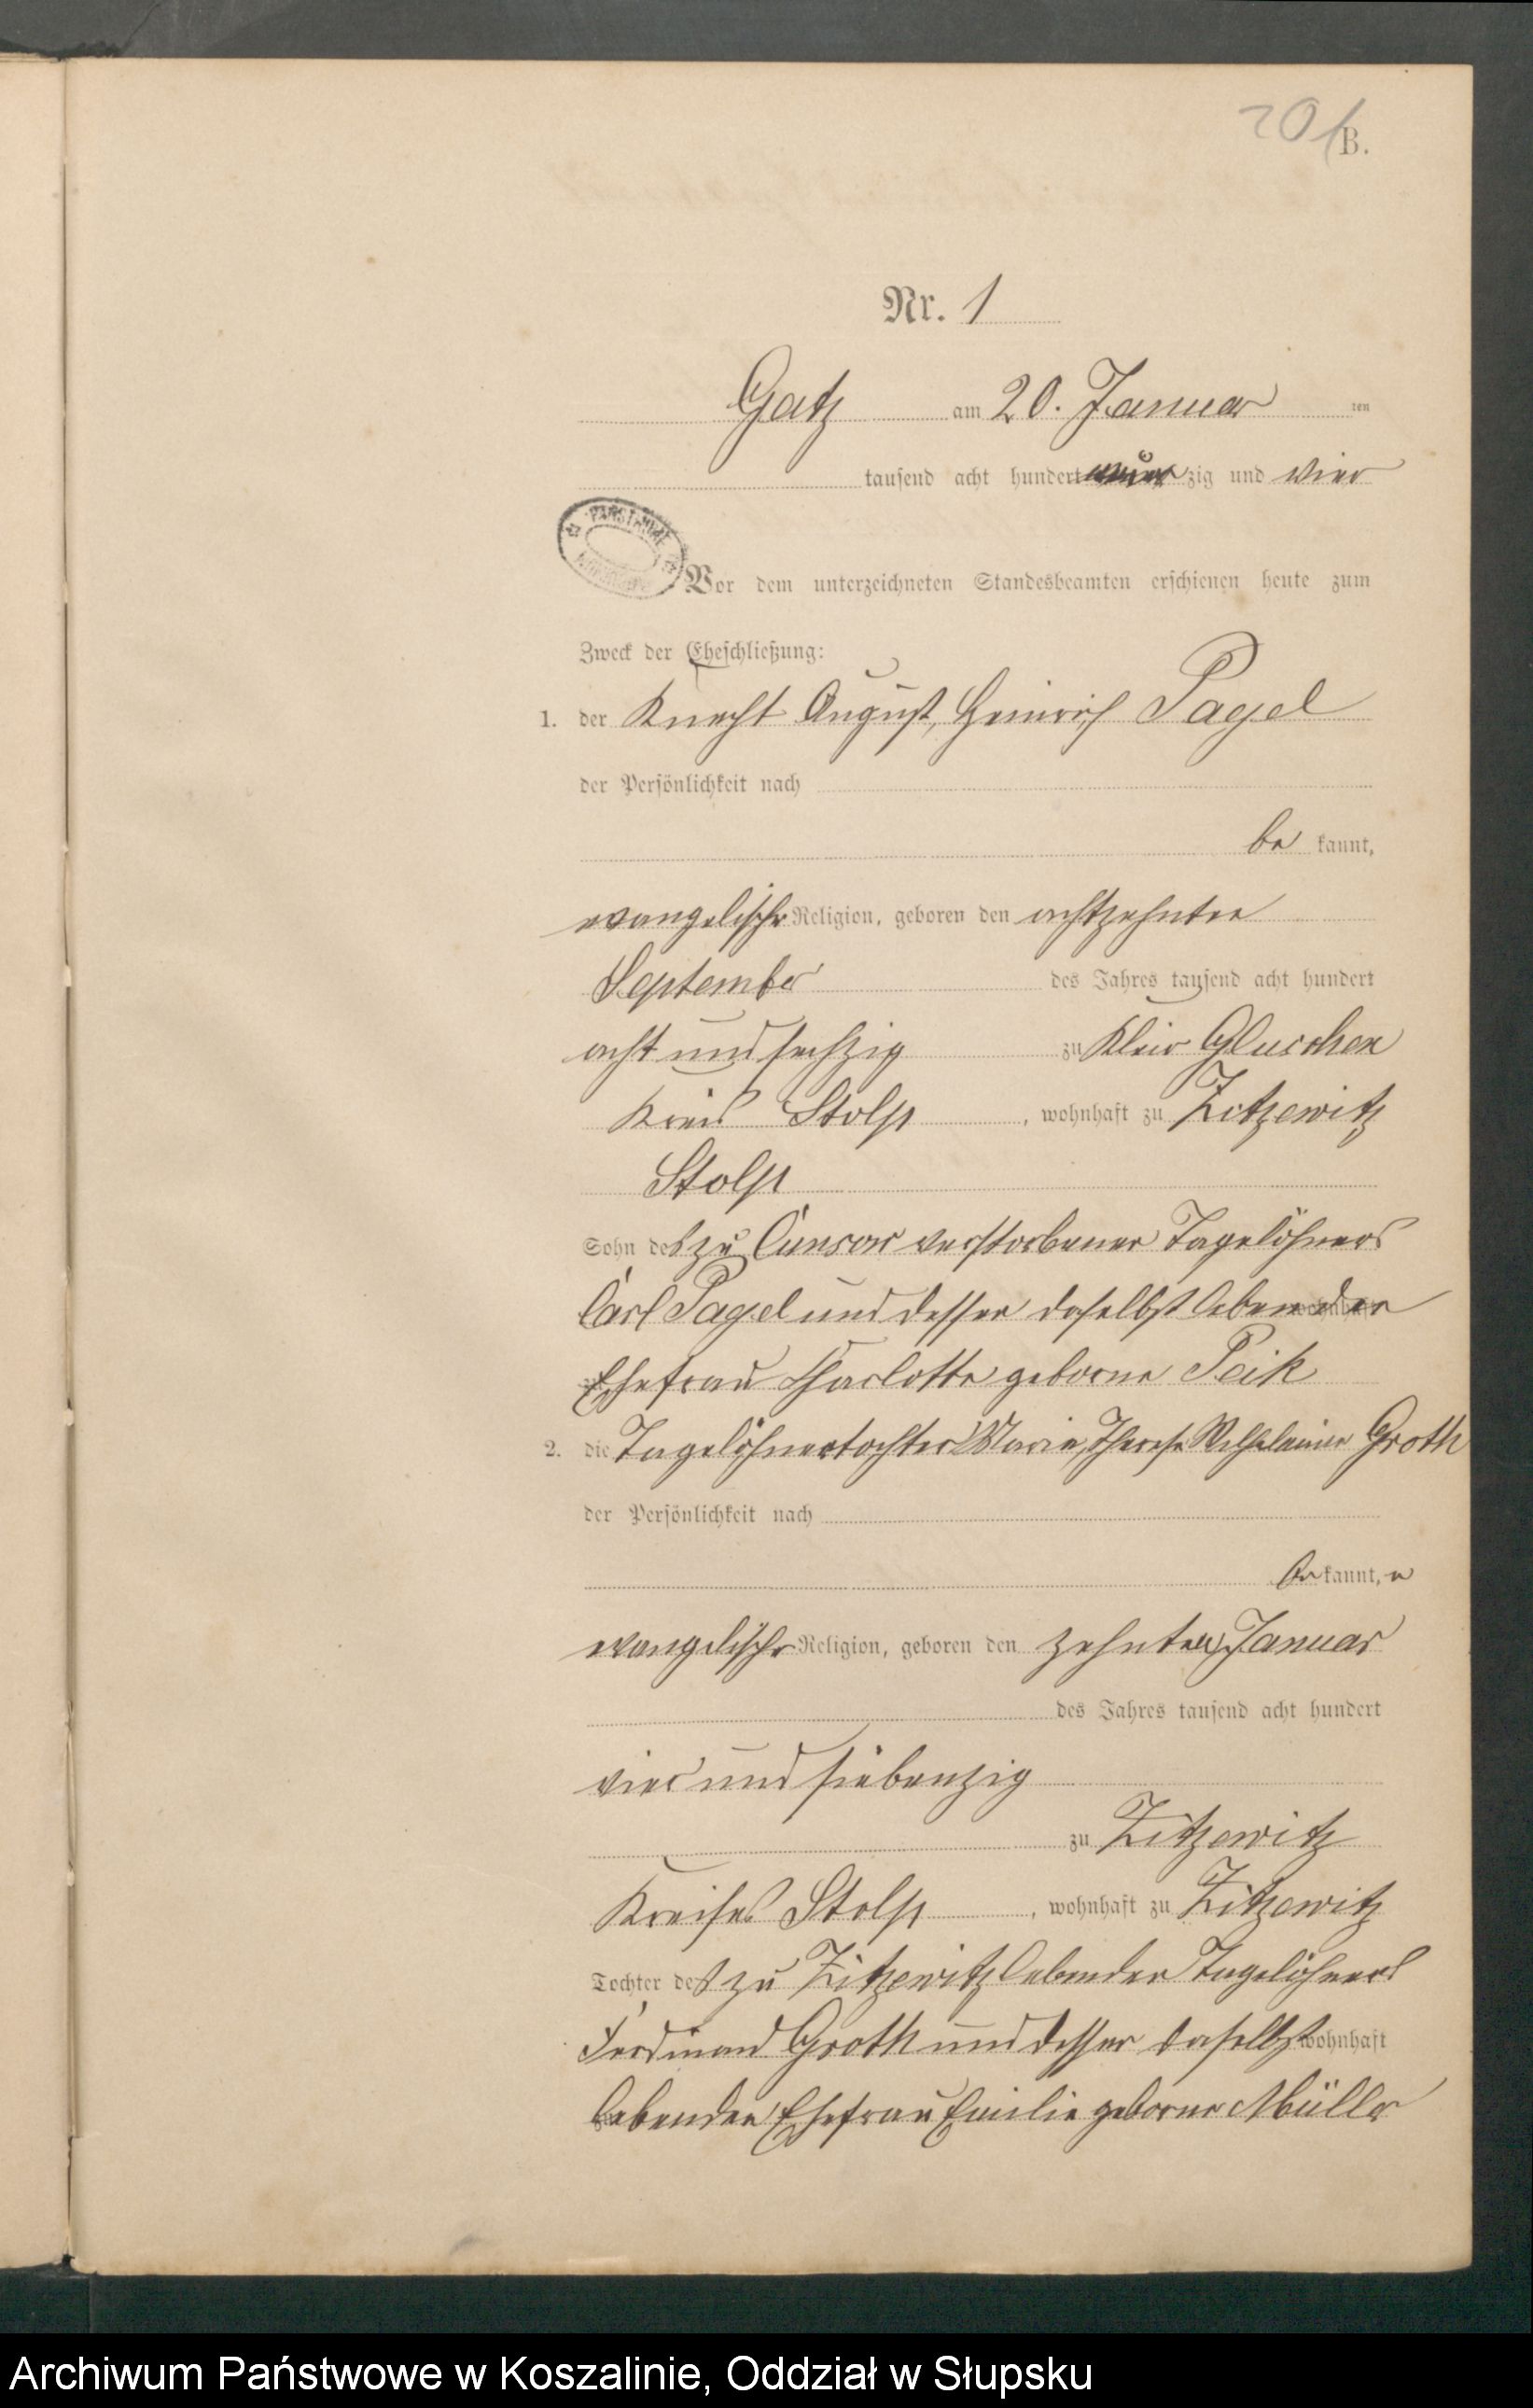 201
B.
Nr. 1
Gatz am 20. Januar ten
tausend acht hundert neun zig und vier
Vor dem unterzeichneten Standesbeamten erschienen heute zum
Zweck der Eheschließung:
1. der Knecht August, Heinrich Pagel
der Persönlichkeit nach
be kannt,
evangelischer Religion, geboren den achtzehnten
September des Jahres tausend acht hundert
acht und sechzig zu Klein Gluschen
Kreis Stolp, wohnhaft zu Zitzewitz
Stolp
Sohn des zu Cunsow verstorbenen Tagelöhners
Carl Pagel und dessen daselbst lebenden
Ehefrau Charlotte geborne Peik
2. die Tagelöhnertochter Marie, Therese Wilhelmine Groth
der Persönlichkeit nach
be kannt,
evangelischer Religion, geboren den zehnten Januar
des Jahres tausend acht hundert
vier und siebenzig
zu Zitzewitz
Kreises Stolp, wohnhaft zu Zitzewitz
Tochter des zu Zitzewitz lebenden Tagelöhners
Ferdinand Groth und dessen daselbst wohnhaft
lebenden Ehefrau Emilie geborne Müller
Archiwum Państwowe w Koszalinie, Oddział w Słupsku